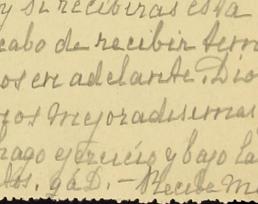 y si recibiras esta
cabo de recibir
os en adelante. Dio
nos mejoradisimas
hago ejercicio y bajo la
los. g a D. — Recibe M